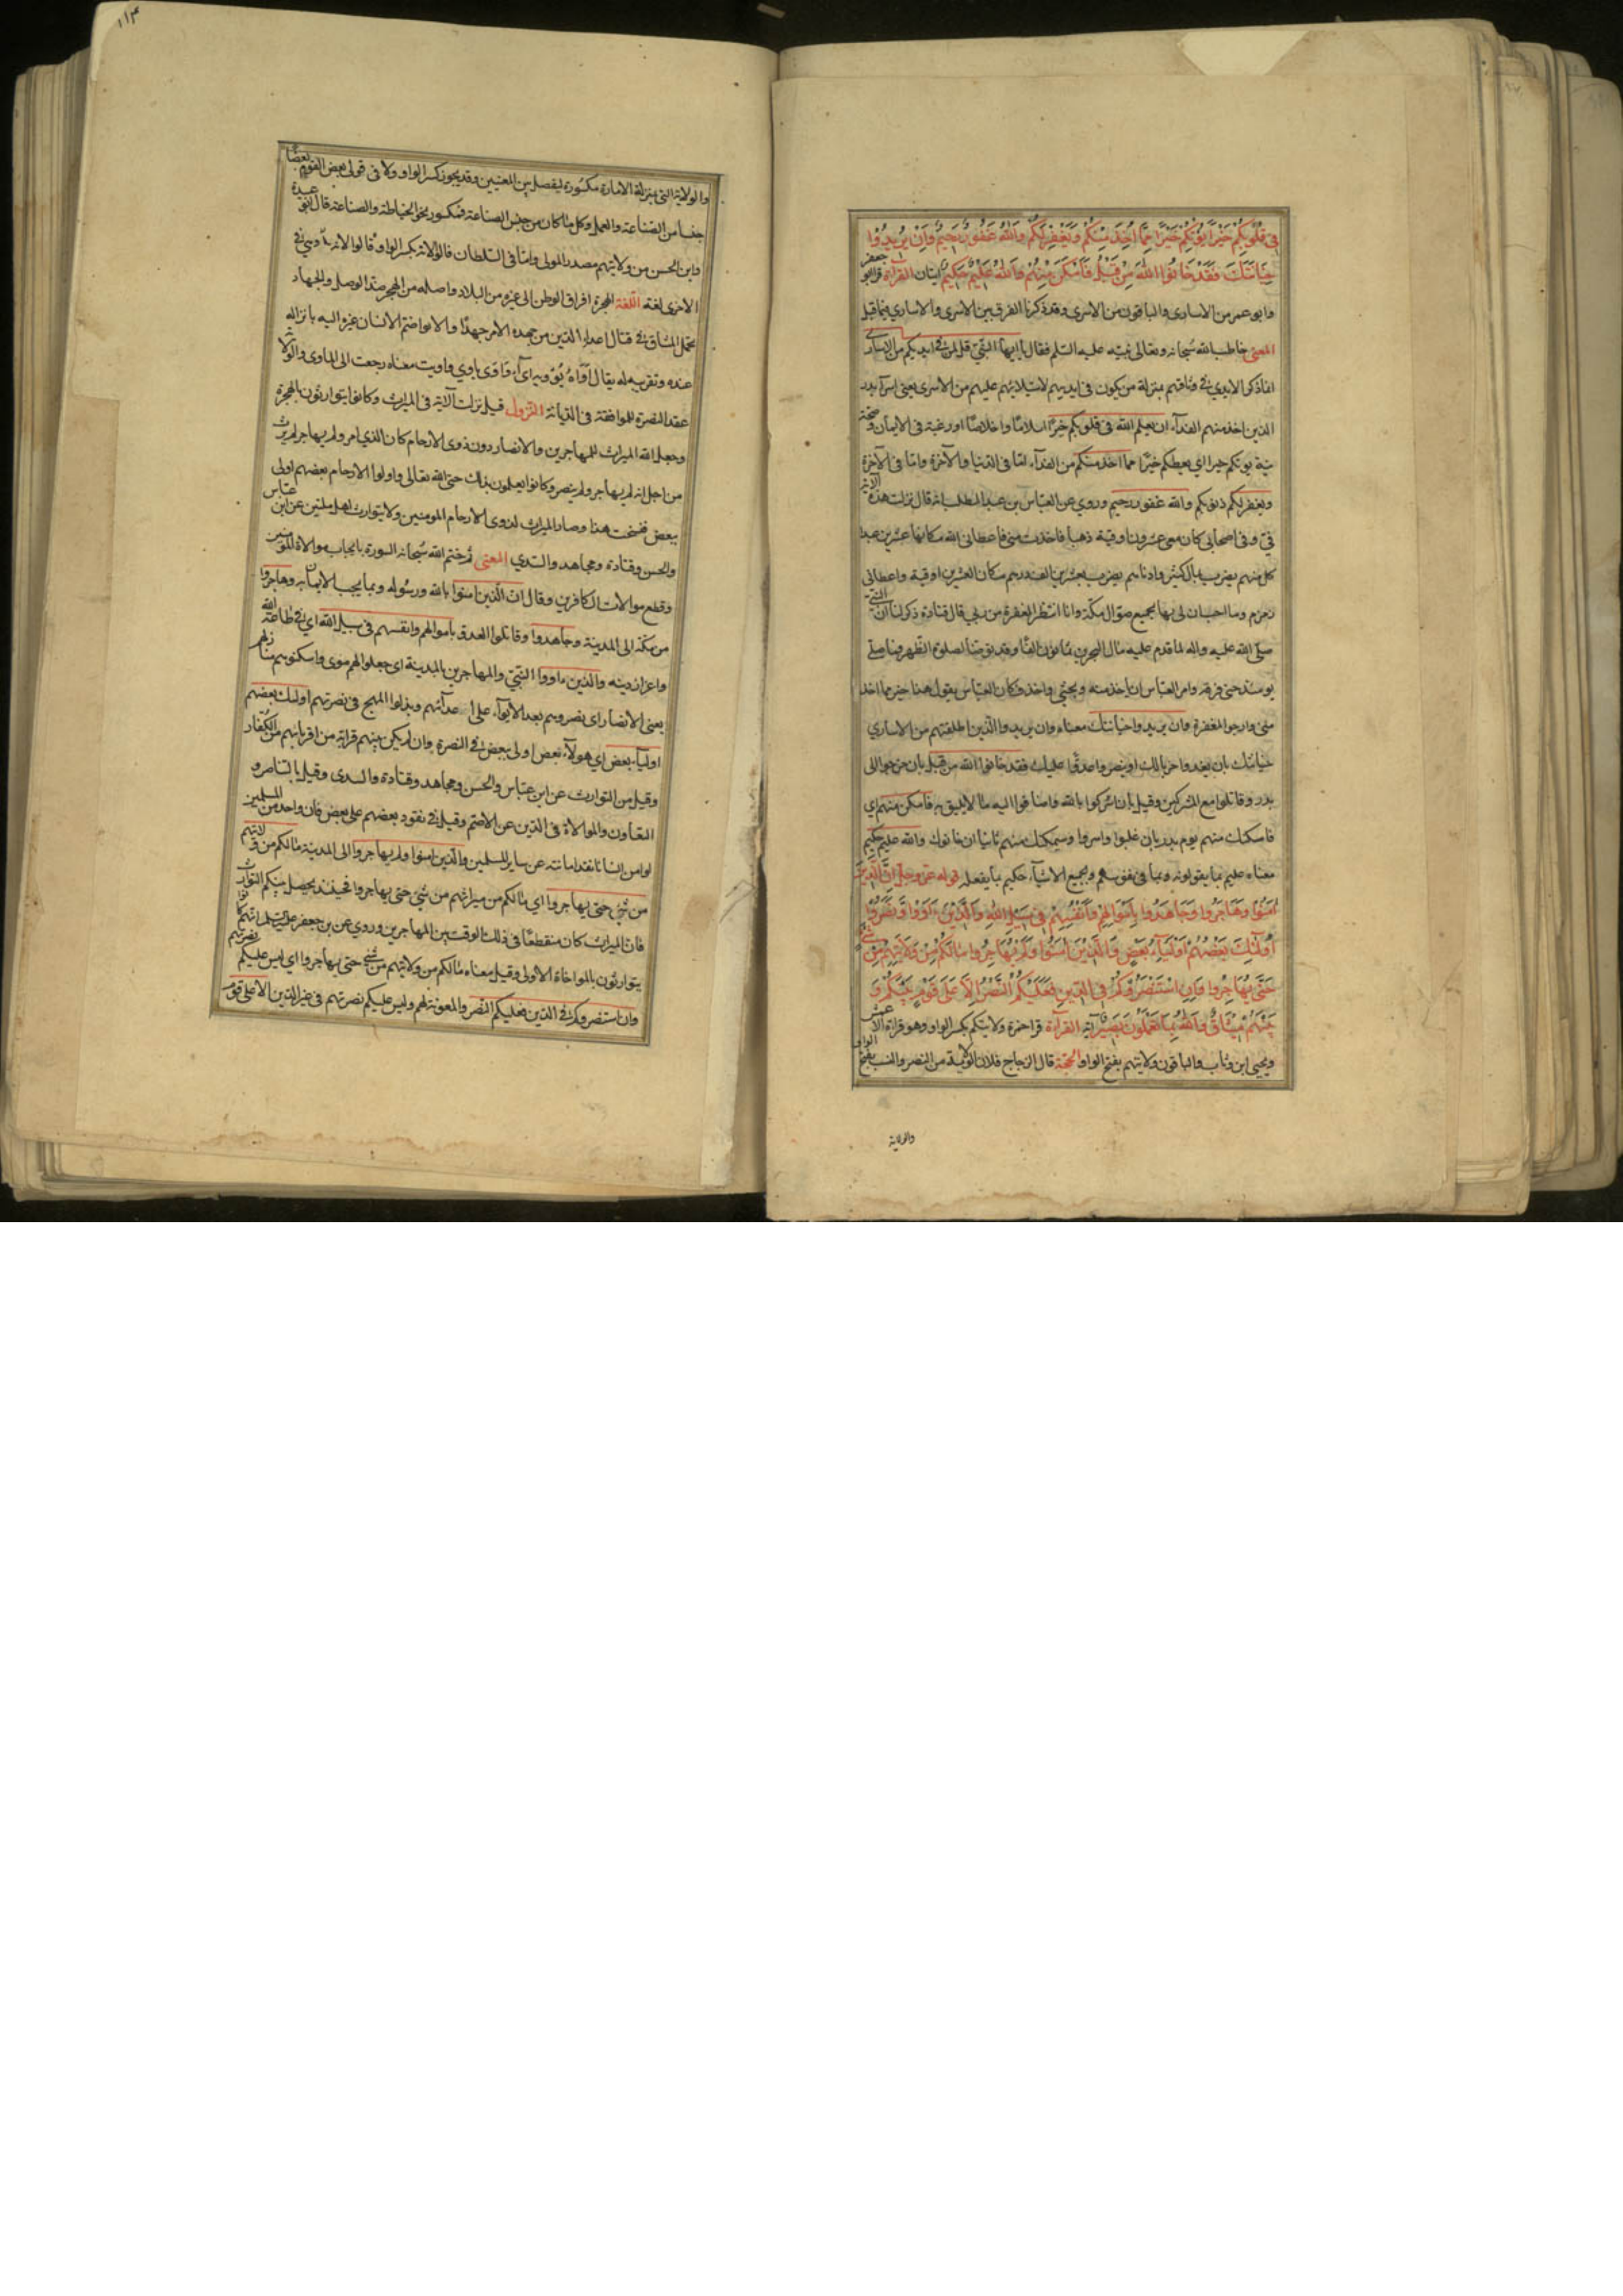 في قُلُوبِكُمْ خَيْرًا يُؤْتِكُمْ خَيْرًا مِمَّا أُخِذَ مِنْكُمْ وَيَغْفِرْ لَكُمْ وَاللهُ غَفُورٌ رَحِيمٌ وَإِنْ يُرِيدُوا
خِيَانَتَكَ فَقَدْ خَانُوا اللهَ مِنْ قَبْلُ فَأَمْكَنَ مِنْهُمْ وَاللهُ عَلِيمٌ حَكِيمٌ ايتان القرآءة قرا ابو جعفر
وابو عمرو من الاسارى والباقون من الاسرى وقد ذكرنا الفرق بين الاسرى والاسارى فيما قبل
المعنى خاطب الله سبحانه وتعالى نبيه عليه السلم فقال يا ايها النبي قل لمن في ايديكم من الاسارى
انما ذكر الايدي لان من في وثاقهم بمنزلة من يكون في ايديهم لاستيلائهم عليهم من الاسرى يعنى اسرآء بدر
الذين اخذ منهم الفدآء ان يعلم الله في قلوبكم خيرًا اسلامًا واخلاصًا او رغبة في الايمان وصحة
نية يوتكم خيرا اي يعطكم خيرًا مما اخذ منكم من الفدآء امّا في الدنيا والآخرة وامّا في الآخرة
ويغفر لكم ذنوبكم والله غفور رحيم وروي عن العباس بن عبد المطلب انه قال نزلت هذه الاية
في وفى اصحابى كان معى عشرون اوقية ذهبا فاخذت منى فاعطانى الله مكانها عشرين عبدا
كل منهم يضرب بمال كثير وادناهم يضرب بعشرين الف درهم مكان العشرين اوقية واعطانى
زمزم وما احب ان لى بها جميع اموال مكة وانا انتظر المغفرة من ربى قال قتادة ذكر لنا ان النبي
صلى الله عليه واله لما قدم عليه مال البحرين ثمانون الفًا وقد توضأ لصلوة الظهر فما صلى
يومئذ حتى فرقه وامر العباس ان ياخذ منه ويحثي واخذ فكان العباس يقول هذا خير مما اخذ
منى وارجو المغفرة وان يريدوا خيانتك معناه وان يريدوا الذين اطلقتهم من الاسارى
خيانتك بان يعدوا حربا لك او ينصروا عدوًّا عليك فقد خانوا الله من قبل بان خرجوا الى
بدر وقاتلوا مع المشركين وقيل بان اشركوا بالله واضافوا اليه ما لا يليق به فامكن منهم اي
فامكنك منهم يوم بدر بان غلبوا واسروا وسيمكنك منهم ثانيا ان خانوك والله عليم حكيم
معناه عليم بما يقولونه وبما في نفوسهم وبجميع الاشيآء حكيم بما يفعله قوله عز وجل إِنَّ الَّذِينَ
آمَنُوا وَهَاجَرُوا وَجَاهَدُوا بِأَمْوَالِهِمْ وَأَنْفُسِهِمْ فِي سَبِيلِ اللهِ وَالَّذِينَ ءَاوَوْا وَنَصَرُوا
أُولَئِكَ بَعْضُهُمْ أَوْلِيَآءُ بَعْضٍ وَالَّذِينَ آمَنُوا وَلَمْ يُهَاجِرُوا مَا لَكُمْ مِنْ وَلَايَتِهِمْ مِنْ شَيْءٍ
حَتَّى يُهَاجِرُوا وَإِنِ اسْتَنْصَرُوكُمْ فِي الدِّينِ فَعَلَيْكُمُ النَّصْرُ إِلَّا عَلَى قَوْمٍ بَيْنَكُمْ وَ
بَيْنَهُمْ مِيثَاقٌ وَاللهُ بِمَا تَعْمَلُونَ بَصِيرٌ آية القرآءة قرا حمزة ولايتكم بكسر الواو وهو قراءة الاعمش
ويحيى ابن وثاب والباقون ولايتهم بفتح الواو الحجة قال الزجاج فلان الولاية من النصر والنسب بفتح الواو
والولاية
١١٣
والولاية التى بمنزلة الامارة مكسورة ليفصل بين المعنيين وقد يجوز كسر الواو ولان في تولى بعض القوم بعضًا
جنسا من الصناعة والعمل وكل ما كان من جنس الصناعة فمكسور نحو الخياطة والصناعة قال ابو عبيدة
وابن الحسن من ولايتهم مصدر المولى وامّا في السلطان فالولاية بكسر الواو وقالوا
الاخرى لغة اللغة الهجرة افراق الوطن الى غيره من البلاد واصله من الهجر ضد الوصل والجهاد
تحمل المشاق في قتال اعداء الدين من جهده الامر جهدًا والايواء ضم الانسان غيره اليه بانزاله
عنده وتقريبه له يقال آواه يؤويه ايوآء واوى ياوي واويت معناه رجعت الى الماوى والولاية
عقد النصرة للموافقة في الديانة النزول قيل نزلت الآية في الميراث وكانوا يتوارثون بالهجرة
وجعل الله الميراث للمهاجرين والانصار دون ذوى الارحام كان الذي امن ولم يهاجر لم يرث
من اجل انه لم يهاجر ولم ينصر وكانوا يعملون بذلك حتى انزل الله تعالى واولوا الارحام بعضهم اولى
ببعض فنسخت هذا وصار الميراث لذوى الارحام المومنين ولا يتوارث اهل ملتين عن ابن عباس
والحسن وقتادة ومجاهد والسدي المعنى ثم ختم الله سبحانه السورة بايجاب موالاة المؤمنين
وقطع موالات الكافرين وقال ان الذين امنوا بالله ورسوله وبما يجب الايمان به وهاجروا
من مكة الى المدينة وجاهدوا وقاتلوا العدو باموالهم وانفسهم في سبيل الله اي في طاعة الله
واعزاز دينه والذين ءاووا النبي والمهاجرين بالمدينة اى جعلوا لهم ماوى واسكنوهم منازلهم
يعنى الانصار اى نصروهم بعد الايوآء على اعدآئهم وبذلوا المهج في نصرتهم اولئك بعضهم
اوليآء بعض اي هولآء بعض اولى ببعض في النصرة وان لم يكن بينهم قرابة من اقربائهم من الكفار
وقيل من التوارث عن ابن عباس والحسن ومجاهد وقتادة والسدى وقيل بالتناصر و
التعاون والموالاة في الدين عن الاصم وقيل في نفوذ بعضهم على بعض فان واحد من المسلمين
لو امن انسانا نفذ امانه عن ساير المسلمين والذين امنوا ولم يهاجروا الى المدينة ما لكم من ولايتهم
من شئ حتى يهاجروا اي ما لكم من ميراثهم من شئ حتى يهاجروا فحينئذ يحصل بينكم التوارث
فان الميراث كان منقطعًا في ذلك الوقت بين المهاجرين وروي عن بن جعفر عليه السلم انهم كانوا
يتوارثون بالمواخاة الاولى وقيل معناه ما لكم من ولايتهم من شئ حتى يهاجروا اي ليس عليكم نصرتهم
وان استنصروكم في الدين فعليكم النصر والمعونة لهم وليس عليكم نصرتهم في غير الدين الا على قوم